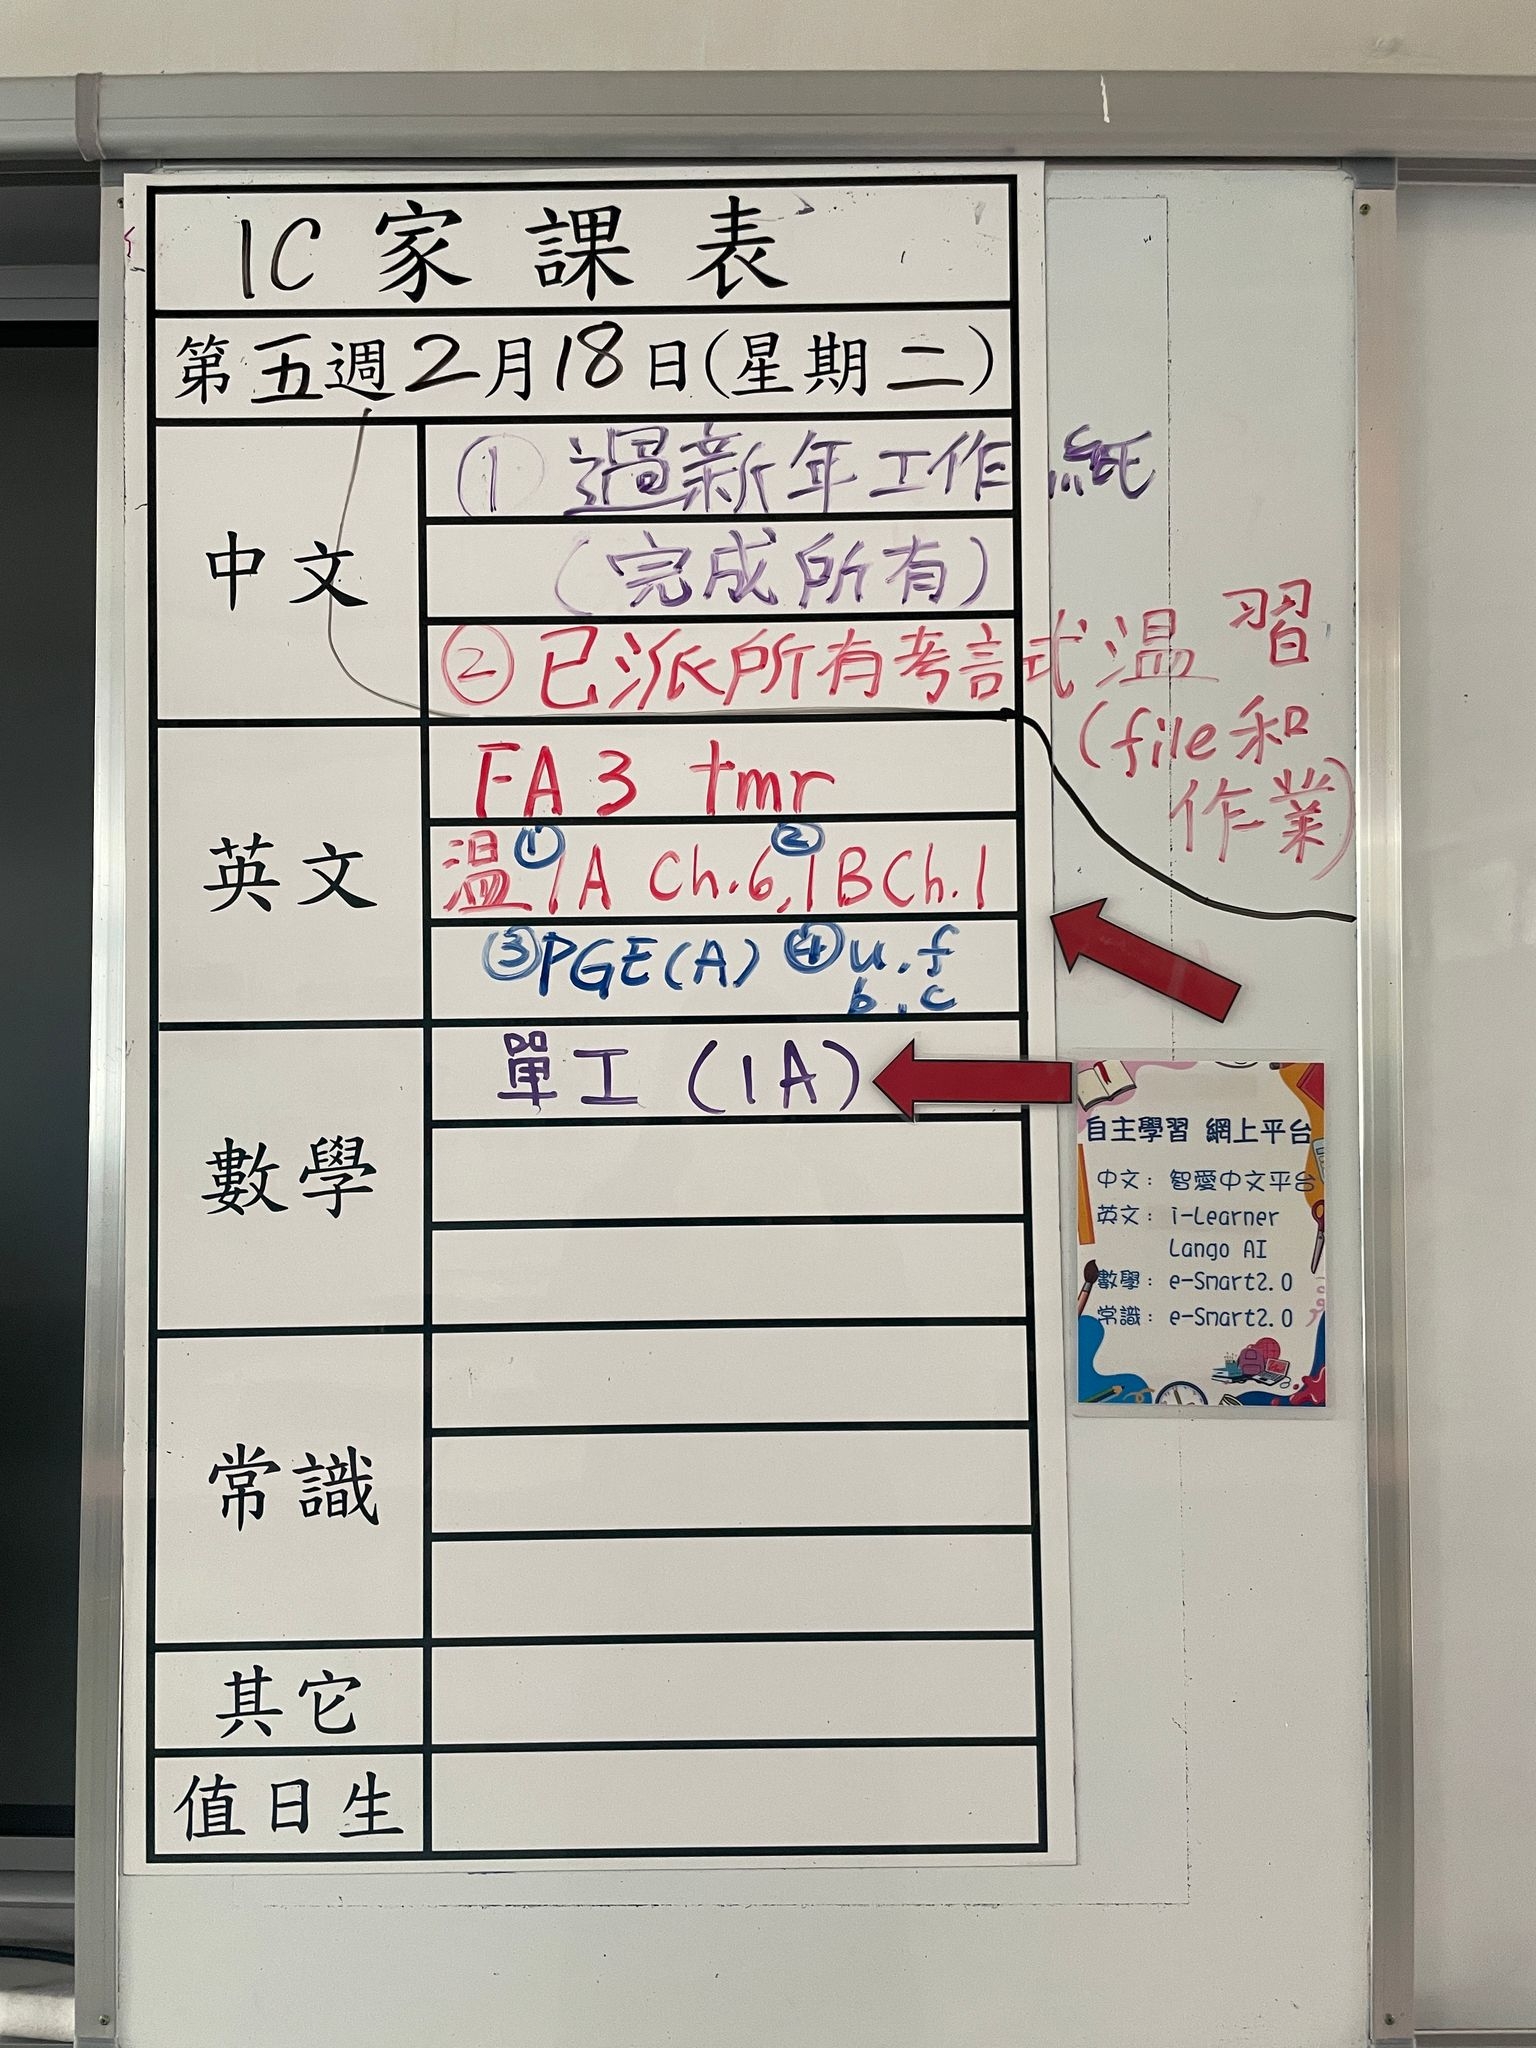 1C 家課表
第五週2月18日(星期二)
中文
① 過新年工作紙
(完成所有)
② 已派所有考試温習
(file和
作業)
英文
FA3 tmr
温①1A Ch.6,②1B Ch.1
③PGE(A) ④u.f
b.c
數學
單工(1A)
常識
其它
值日生
自主學習 網上平台
中文：智愛中文平台
英文：i-Learner
Lango AI
數學：e-Smart2.0
常識：e-Smart2.0